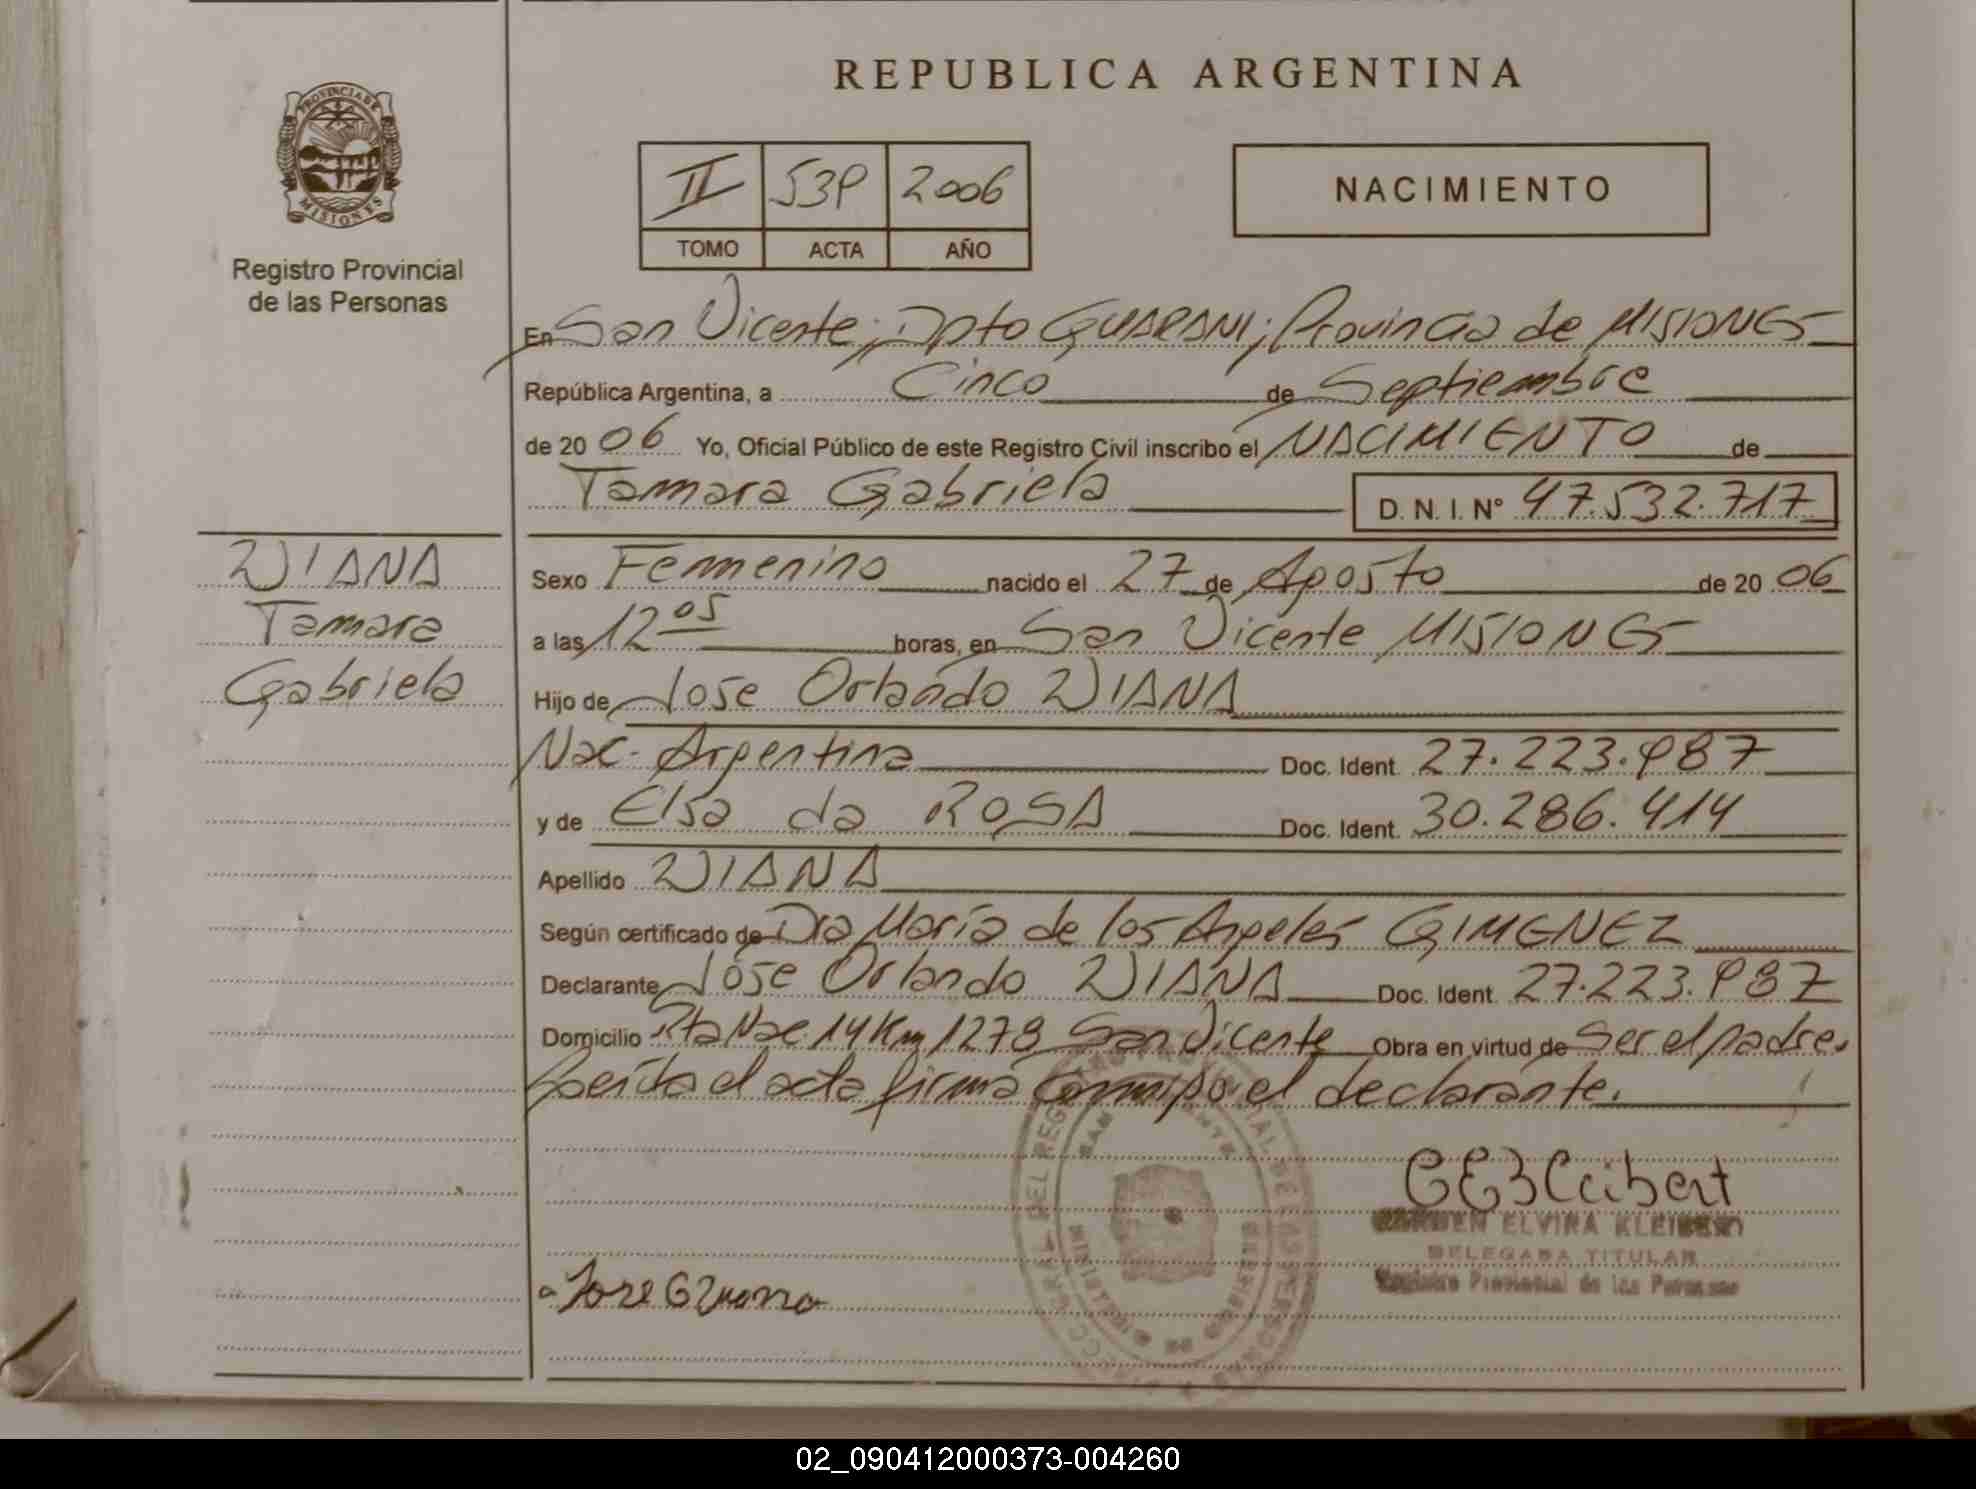 REPUBLICA ARGENTINA
PROVINCIA DE
MISIONES
Registro Provincial
de las Personas
II 539 2006
TOMO ACTA AÑO
NACIMIENTO
En San Vicente; Dpto GUARANI; Provincia de MISIONES
República Argentina, a Cinco de Septiembre
de 20 06 Yo, Oficial Público de este Registro Civil inscribo el NACIMIENTO de
Tamara Gabriela D. N. I. N° 47.532.717
WIANA
Tamara
Gabriela
Sexo Femenino nacido el 27 de Agosto de 20 06
a las 12 05 horas, en San Vicente MISIONES
Hijo de Jose Orlando WIANA
Nac. Argentina Doc. Ident. 27.223.987
y de Elsa da ROSA Doc. Ident. 30.286.414
Apellido WIANA
Según certificado de Dra María de los Angeles GIMENEZ
Declarante Jose Orlando WIANA Doc. Ident. 27.223.987
Domicilio Rta Nac. 14 Km 1278 San Vicente Obra en virtud de Ser el padre.
Leida el acta firma Conmigo el declarante.
CARMEN ELVIRA KLEIBERT
DELEGADA TITULAR
Registro Provincial de las Personas
02_090412000373-004260